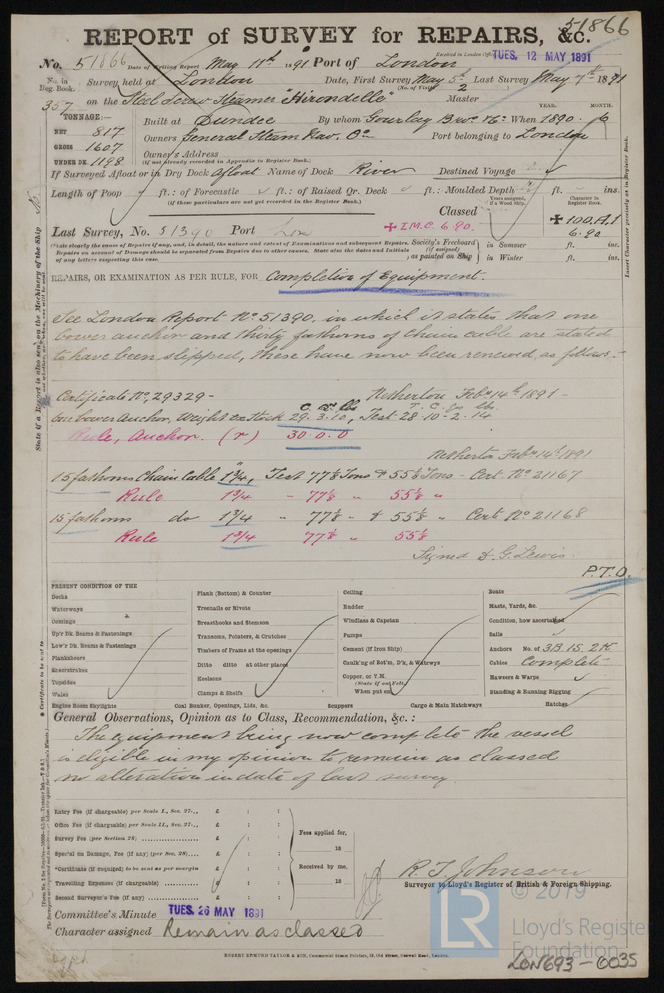 51866
REPORT of SURVEY for REPAIRS, &c.
Received in London Office TUES. 12 MAY 1891
No. 51866 Date of Writing Report May 11th 1891 Port of London
No. in Reg. Book. Survey held at London Date, First Survey May 5th Last Survey May 7th 1891
(No. of Visits) 2
357 on the Steel Screw Steamer "Hirondelle" Master
TONNAGE:— YEAR. MONTH.
NET 817 Built at Dundee By whom Gourlay Bros & Co. When 1890. 6
GROSS 1607 Owners General Steam Nav. Co Port belonging to London
UNDER DK. 1198 Owner's Address
(if not already recorded in Appendix to Register Book.)
If Surveyed Afloat or in Dry Dock Afloat Name of Dock River Destined Voyage
Length of Poop ft.: of Forecastle ft.: of Raised Qr. Deck ft.: Moulded Depth ft. ins.
(if these particulars are not yet recorded in the Register Book.)
Years assigned, if a Wood ship.
Character in Register Book.
Classed
✠ L.M.C. 6.90.
✠ 100.A.1
6.90
Last Survey, No. 51390 Port Lon
Society's Freeboard (if assigned) as painted on Ship
in Summer ft. ins.
in Winter ft. ins.
REPAIRS, OR EXAMINATION AS PER RULE, FOR Completion of Equipment.
See London Report No. 51390, in which it states that one
bower anchor and thirty fathoms of chain cable are stated
to have been slipped, these have now been renewed, as follows:-
Certificate No. 29329 - Netherton Feby 14th 1891 -
C. Q. lbs T. C. Q. lbs.
One bower Anchor, Weight ex Stock 29.3.10, Test 28.10.2.14
Rule, Anchor. (r) 30.0.0
Netherton Feby 14th 1891
15 fathoms Chain Cable 1 3/4", Test 77 1/8 Tons & 55 1/8 Tons - Cert No. 21167
Rule 1 3/4 - 77 1/8 " 55 1/8 "
15 fathoms do 1 3/4 " 77 1/8 " & 55 1/8 " Cert. No. 21168
Rule 1 3/4 77 1/8 " 55 1/8
Signed D. G. Lewis.
P.T.O.
PRESENT CONDITION OF THE
Decks
Waterways
Comings
Up'r Dk. Beams & Fastenings
Low'r Dk. Beams & Fastenings
Planksheers
Sheerstrakes
Topsides
Wales
Engine Room Skylights
Plank (Bottom) & Counter
Treenails or Rivets
Breasthooks and Stemson
Transoms, Pointers, & Crutches
Timbers of Frame at the openings
Ditto ditto at other places
Keelsons
Clamps & Shelfs
Coal Bunker, Openings, Lids, &c.
Ceiling
Rudder
Windlass & Capstan
Pumps
Cement (if Iron Ship)
Caulk'ng of Bot'm, D'k, & Wat'rwys
Copper, or Y.M.
(State if on Felt.)
When put on
Scuppers
Cargo & Main Hatchways
Boats
Masts, Yards, &c.
Condition, how ascertained
Sails
Anchors No. of 3B. 1S. 2K
Cables Complete
Hawsers & Warps
Standing & Running Rigging
Hatches
General Observations, Opinion as to Class, Recommendation, &c. :
The equipment being now complete the vessel
is eligible in my opinion to remain as classed
no alteration in date of last survey
Entry Fee (if chargeable) per Scale I., Sec. 27... £ : :
Office Fee (if chargeable) per Scale II., Sec. 27... £ : :
Survey Fee (per Section 28) £ : :
Special on Damage, Fee (if any) (per Sec. 28) £ : :
*Certificate (if required) to be sent as per margin
Travelling Expenses (if chargeable) £ : :
Second Surveyor's Fee (if any) £ : :
Fees applied for,
18
Received by me,
18
R. T. Johnson
Surveyor to Lloyd's Register of British & Foreign Shipping.
Committee's Minute TUES. 26 MAY 1891
Character assigned Remain as classed
© 2019
LR
Lloyd's Register
Foundation
LON693-0035